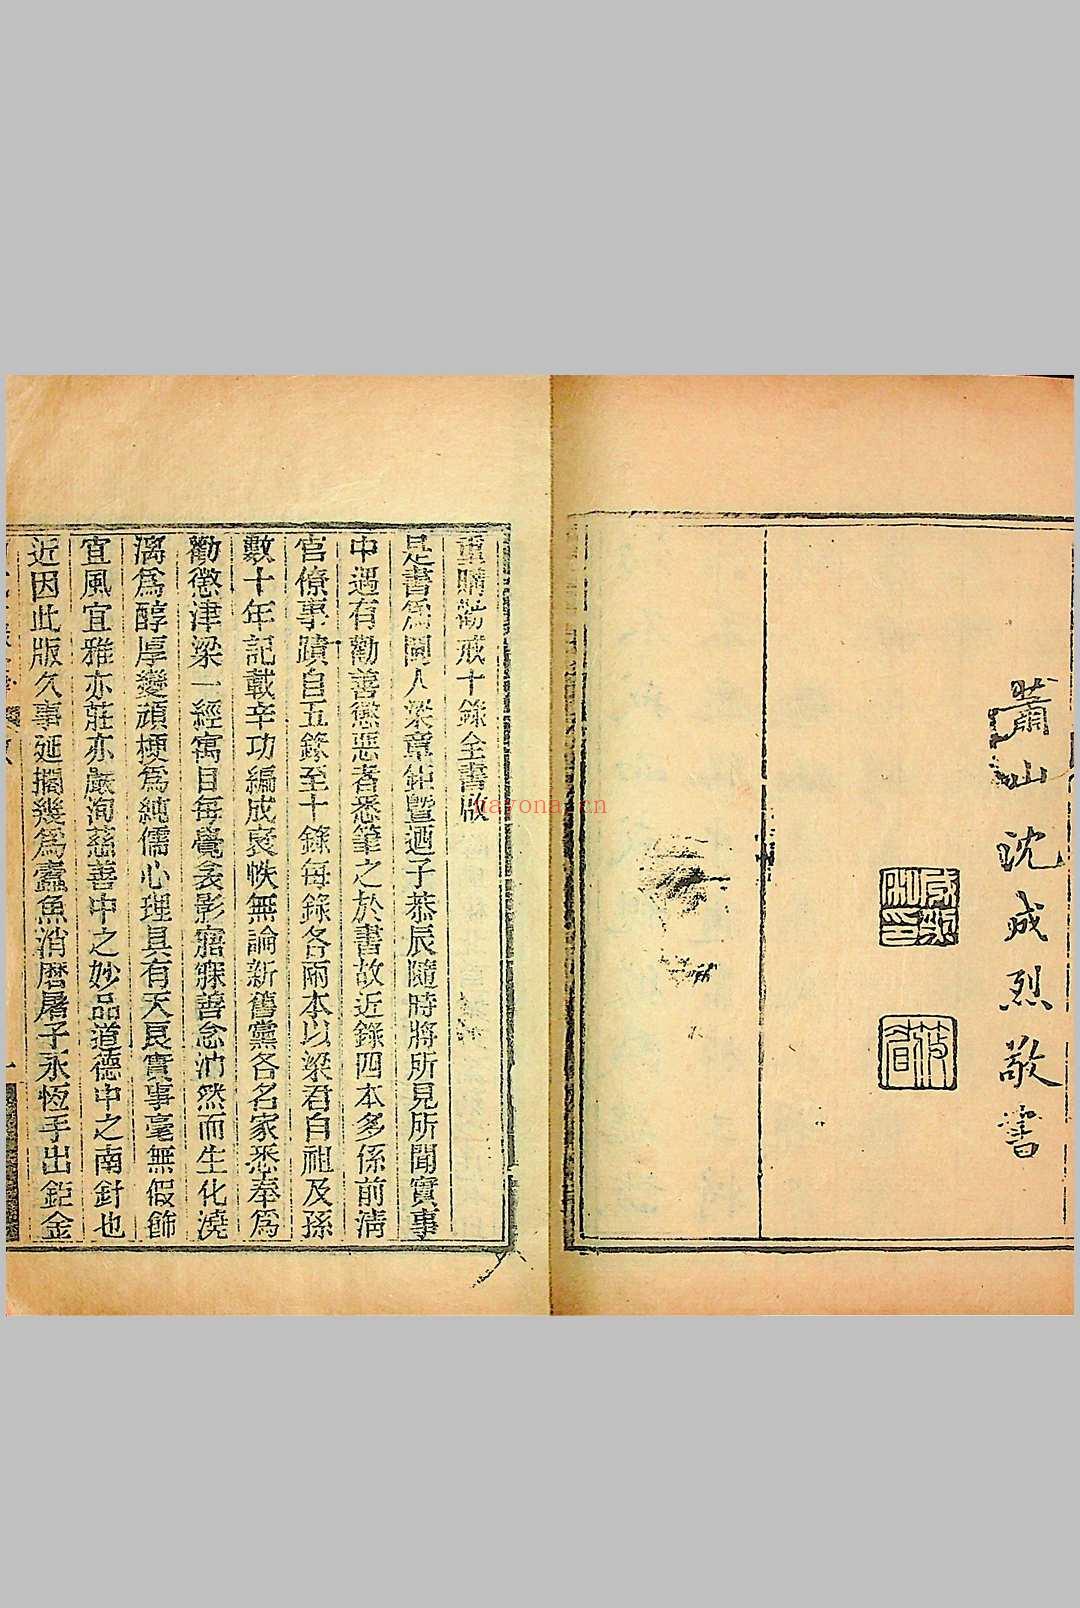 蕭山沈成烈敬書
重購勸戒十錄全書啟
是書爲閩人梁章鉅暨廼子恭辰隨時將所見所聞實事
中遇有勸善懲惡者悉筆之於書故近錄四本多係前淸
官僚事蹟自五錄至十錄每錄各兩本以梁君自祖及孫
數十年記載辛功編成袠帙無論新舊黨各名家悉奉爲
勸懲津梁一經寓目每覺衾影寤寐善念油然而生化澆
漓爲醇厚變頑梗爲純儒心理具有天良實事毫無假飾
宜風宜雅亦莊亦嚴洵慈善中之妙品道德中之南針也
近因此版久事延擱幾爲蠹魚消磨屠子永恆手出鉅金
uayona.cn